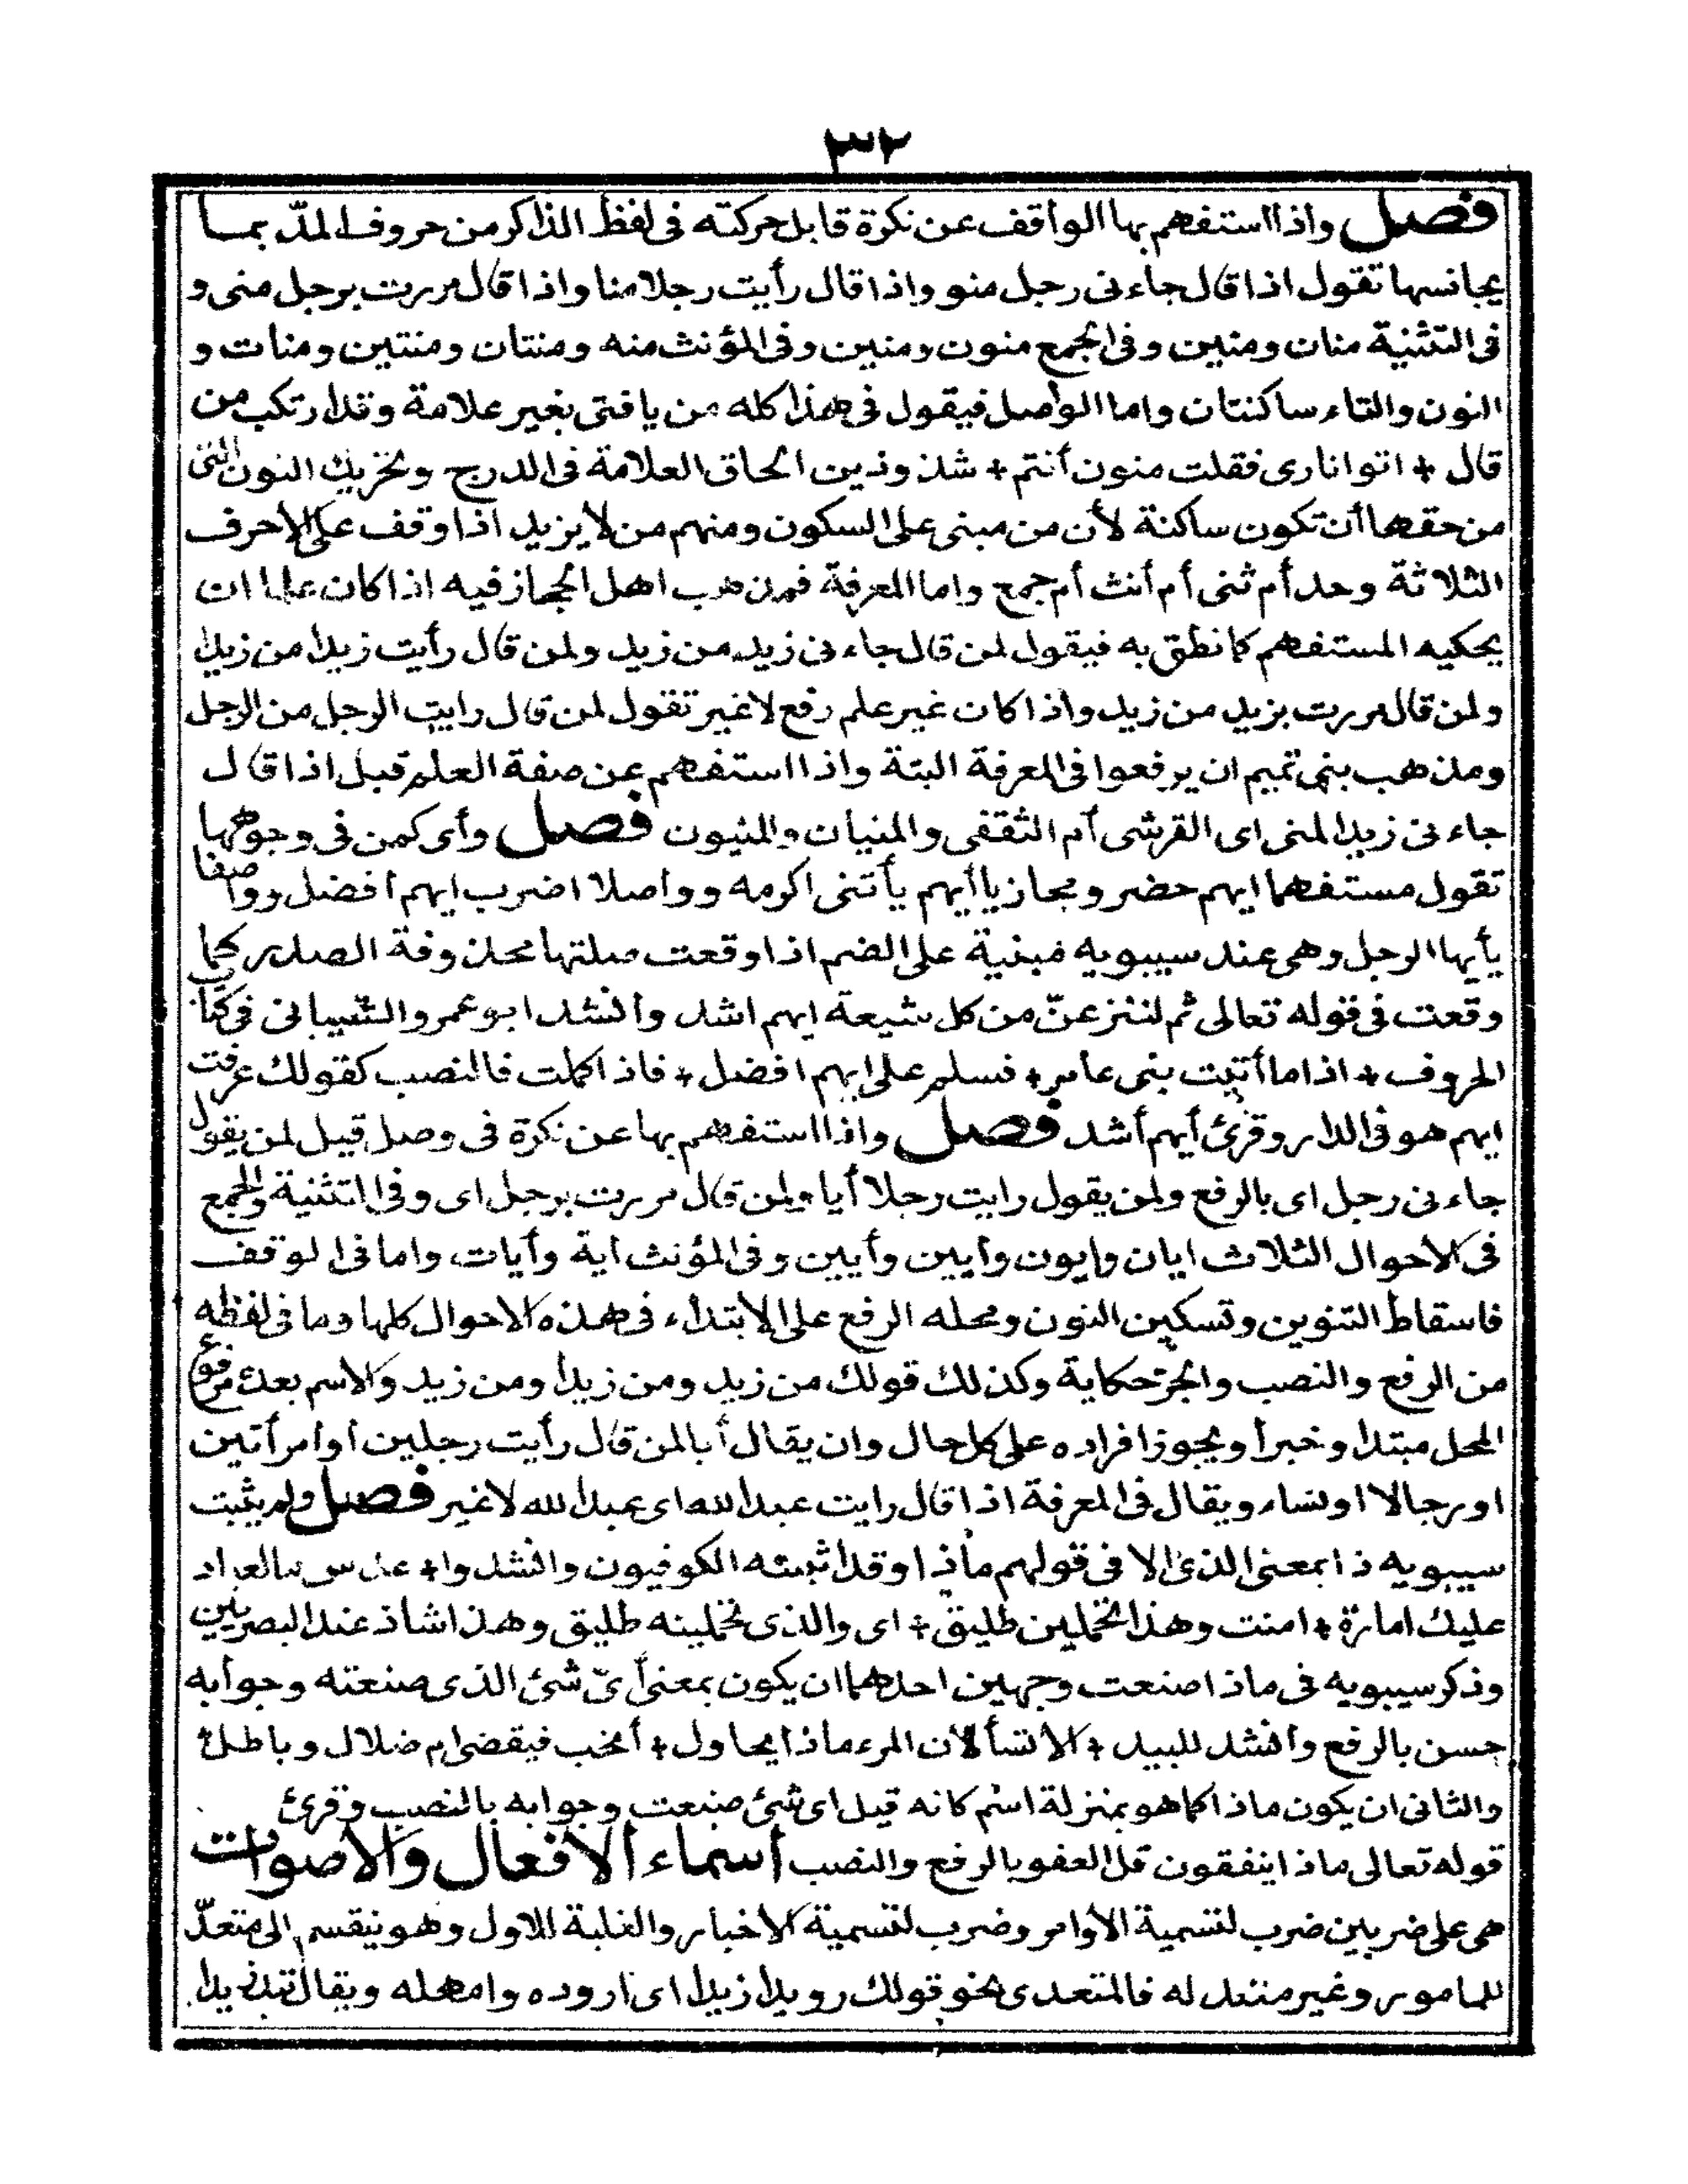 ٣٢
فصل واذا استفهم بها الواقف عن نكرة قابل حركته فى لفظ الذاكر من حروف المدّ بما
يجانسها تقول اذا قال جاءنى رجل منو واذا قال رأيت رجلا منا واذا قال مررت برجل منى و
فى التثنية منان ومنين وفى الجمع منون ومنين وفى المؤنث منه ومنتان ومنتين ومنات و
النون والتاء ساكنتان واما الواصل فيقول فى هذا كله من يا فتى بغير علامة وقد ارتكب من
قال + اتوا نارى فقلت منون أنتم + شذوذين الحاق العلامة فى الدرج وتحريك النون التى
من حقها أن تكون ساكنة لأن من مبنى على السكون ومنهم من لا يزيد اذا وقف على الأحرف
الثلاثة وحد أم ثنى أم أنث أم جمع واما المعرفة فمذهب اهل الحجاز فيه اذا كان علما ان
يحكيه المستفهم كما نطق به فيقول لمن قال جاءنى زيد من زيد ولمن قال رأيت زيدا من زيدا
ولمن قال مررت بزيد من زيد واذا كان غير علم رفع لا غير تقول لمن قال رايت الرجل من الرجل
ومذهب بنى تميم ان يرفعوا فى المعرفة البتة واذا استفهم عن صفة العلم قبل اذا قال
جاءنى زيد المنى اى القرشى أم الثقفى والمنيان والمنيون فصل وأى كمن فى وجوهها
تقول مستفهما ايهم حضر ومجازيا أيهم يأتنى اكرمه وواصلا اضرب ايهم افضل وواصفا
يأيها الرجل وهى عند سيبويه مبنية على الضم اذا وقعت صلتها محذوفة الصدر كما
وقعت فى قوله تعالى ثم لننزعنّ من كل شيعة ايهم اشد وأنشد ابو عمرو الشيبانى فى كتاب
الحروف + اذا ما أتيت بنى عامر + فسلم على ايهم افضل + فاذا كملت فالنصب كقولك عرفت
ايهم هو فى الدار وقرئ أيهم أشد فصل واذا استفهم بها عن نكرة فى وصل قيل لمن يقول
جاءنى رجل اى بالرفع ولمن يقول رايت رجلا أيا ولمن قال مررت برجل اى وفى التثنية والجمع
فى الأحوال الثلاث ايان وايون وأيين وأيين وفى المؤنث اية وأيات واما فى الوقف
فاسقاط التنوين وتسكين النون ومحله الرفع على الابتداء فى هذه الاحوال كلها وما فى لفظه
من الرفع والنصب والجرّ حكاية وكذلك قولك من زيد ومن زيدا ومن زيد والاسم بعده مرفوع
المحل مبتدا وخبرا ويجوز افراده على كل حال وان يقال أيا لمن قال رأيت رجلين او امرأتين
او رجالا او نساء ويقال فى المعرفة اذا قال رايت عبد الله اى عبد الله لا غير فصل ولم يثبت
سيبويه ذا بمعنى الذى الا فى قولهم ماذا وقد اثبته الكوفيون وانشدوا + عدس ما لعباد
عليك امارة + امنت وهذا تحملين طليق + اى والذى تحملينه طليق وهذا شاذ عند البصريين
وذكر سيبويه فى ماذا صنعت وجهين احدهما ان يكون بمعنى أىّ شئ الذى صنعته وجوابه
حسن بالرفع وأنشد للبيد + ألا تسألان المرء ماذا يحاول + أنحب فيقضى ام ضلال وباطل
والثانى ان يكون ماذا كما هو بمنزلة اسم كانه قيل اى شئ صنعت وجوابه بالنصب وقرئ
قوله تعالى ماذا ينفقون قل العفو بالرفع والنصب أسماء الأفعال والأصوات
هى على ضربين ضرب لتسمية الأوامر وضرب لتسمية الأخبار والغلبة للاول وهو ينقسم الى متعدّ
للمامور وغير متعد له فالمتعدى نحو قولك رويد زيدا اى اروده وامهله ويقال تيد زيدا